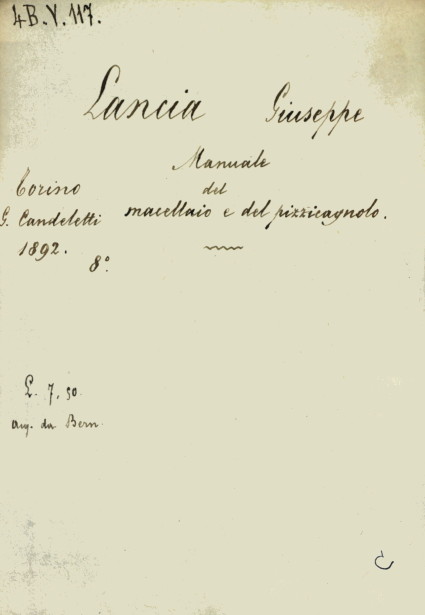 4B.V.117.
Lancia Giuseppe
Manuale
del
macellaio e del pizzicagnolo.
Torino
G. Candeletti
1892.
8°.
L. 7,50
da Bern